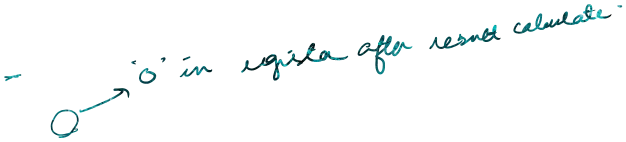 - '0' in register after result calculate.